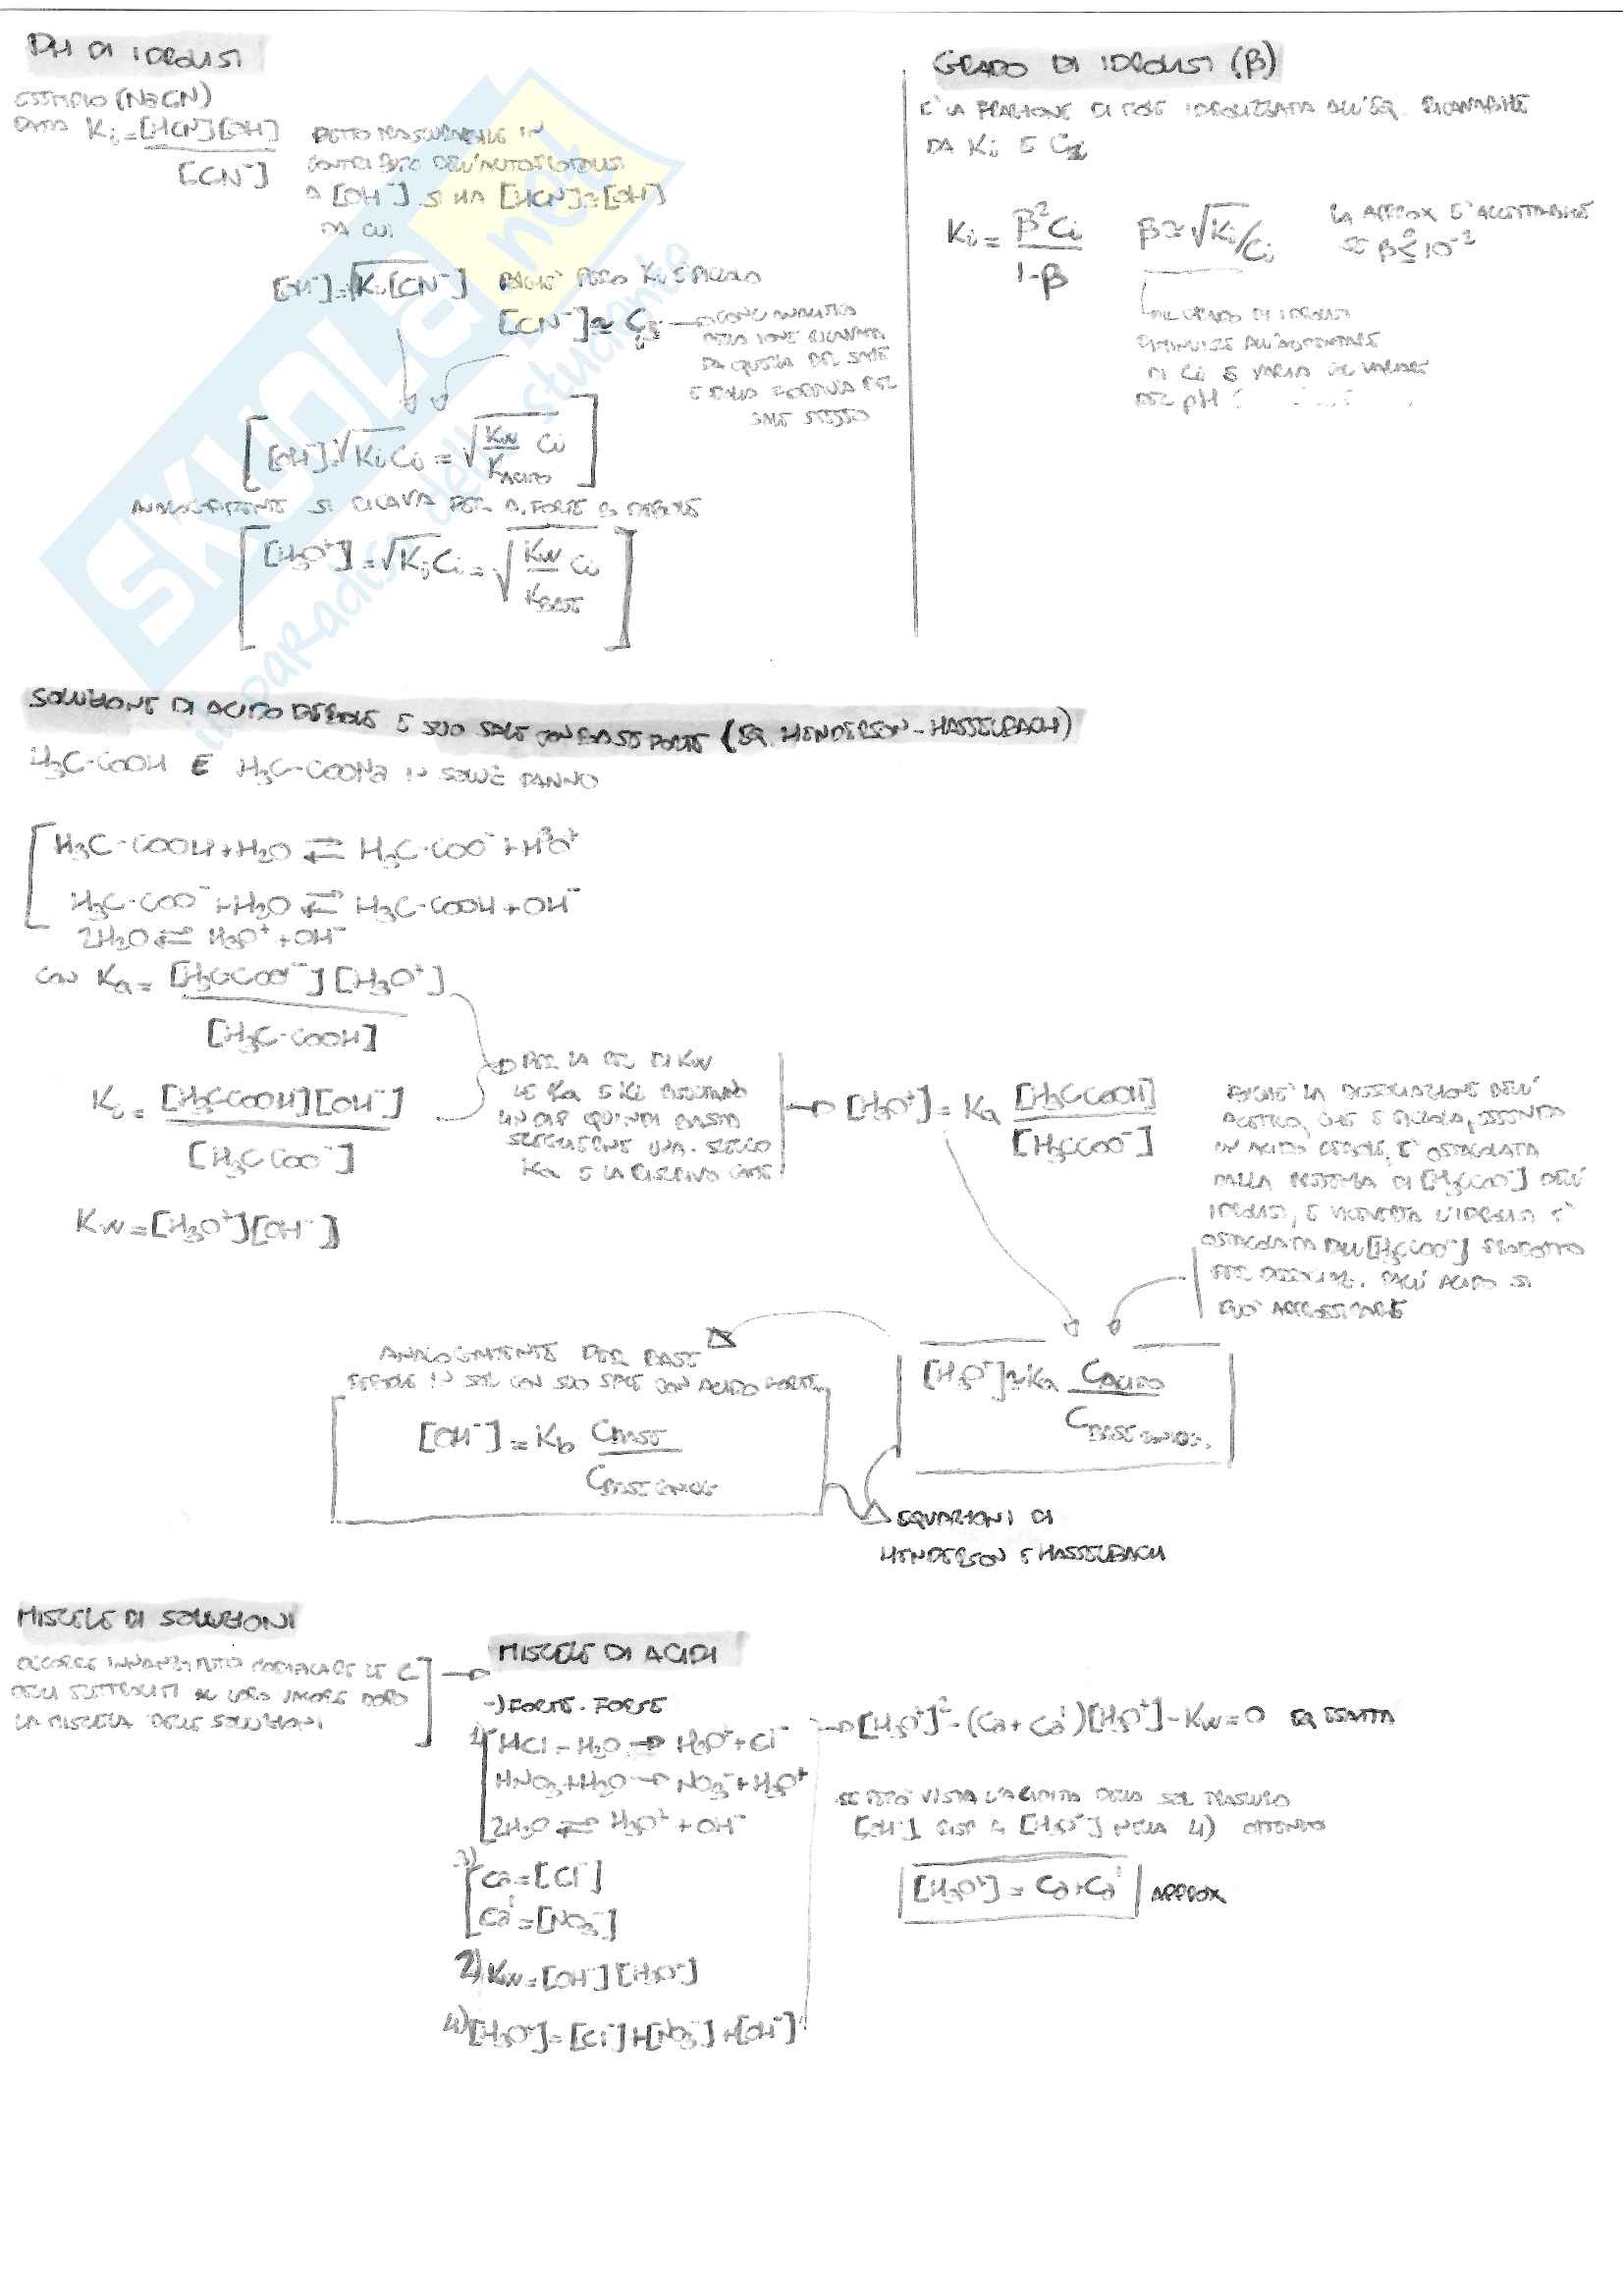 PH DI IDROLISI
ESEMPIO (NaCN)
DATA Ki = [HCN][OH⁻]
[CN⁻]
DETTO TRASCURABILE IN
CONTRIBUTO DELL'AUTOPROTOLISI
A [OH⁻] SI HA [HCN]≃[OH⁻]
DA CUI
[OH⁻]=√Ki[CN⁻] POICHÈ PERÒ Ki È PICCOLO
[CN⁻]≃ Ci CONC ANALITICA
DELLO IONE RICAVATA
DA QUELLA DEL SALE
E DALLA FORMULA DEL
SALE STESSO
[OH⁻]=√KiCi = √Kw/Kacido Ci
ANALOGAMENTE SI RICAVA PER A. FORTE B DEBOLE
[H₃O⁺] = √KiCi = √Kw/Kbase Ci
GRADO DI IDROLISI (β)
E' LA FRAZIONE DI MOLE IDROLIZZATA ALL'EQ. RICAVABILE
DA Ki E Ci
Ki = β²Ci
1-β
β≃√Ki/Ci
LA APPROX E' ACCETTABILE
SE β≤10⁻²
IL GRADO DI IDROLISI
DIMINUISCE ALL'AUMENTARE
DI Ci E VARIA AL VARIARE
DEL pH
SOLUZIONE DI ACIDO DEBOLE E SUO SALE CON BASE FORTE (EQ. HENDERSON-HASSELBACH)
H₃C-COOH E H₃C-COONa IN SOLNE DANNO
H₃C-COOH+H₂O ⇌ H₃C-COO⁻+H₃O⁺
H₃C-COO⁻+H₂O ⇌ H₃C-COOH+OH⁻
2H₂O⇌ H₃O⁺+OH⁻
CON Ka = [H₃CCOO⁻][H₃O⁺]
[H₃C-COOH]
Ki = [H₃CCOOH][OH⁻]
[H₃CCOO⁻]
Kw=[H₃O⁺][OH⁻]
PER LA REL DI Kw
LE Ka E Ki RISULTANO
QUINDI BASTA
SCEGLIERNE UNA. SCELGO
Ka E LA RISCRIVO COME
[H₃O⁺] = Ka [H₃CCOOH]
[H₃CCOO⁻]
POICHÈ LA DISSOCIAZIONE DELL'
ACETICO, CHE È PICCOLA, ESSENDO
UN ACIDO DEBOLE, E' OSTACOLATA
DALLA PRESENZA DI [H₃CCOO⁻] DELL'
IDROLISI, E VICEVERSA L'IDROLISI E'
OSTACOLATA DALL'[H₃CCOO⁻] PRODOTTO
PER DISSOCIAZ. DALL'ACIDO SI
PUÒ APPROSSIMARE
[H₃O⁺]≃Ka Cacido
Cbase coniug.
ANALOGAMENTE PER BASE
DEBOLE IN SOL CON SUO SALE CON ACIDO FORTE
[OH⁻] = Kb Cbase
Cbase coniug
EQUAZIONI DI
HENDERSON E HASSELBACH
MISCELE DI SOLUZIONI
OCCORRE INNANZITUTTO MODIFICARE LE C
DEGLI ELETTROLITI AL LORO VALORE DOPO
LA MISCELA DELLE SOLUZIONI
MISCELE DI ACIDI
-) FORTE-FORTE
1) HCl-H₂O → H₃O⁺+Cl⁻
HNO₃+H₂O → NO₃⁻+H₃O⁺
2H₂O ⇌ H₃O⁺+OH⁻
3) Ca=[Cl⁻]
Ca'=[NO₃⁻]
2) Kw=[OH⁻][H₃O⁺]
4) [H₃O⁺]=[Cl⁻]+[NO₃⁻]+[OH⁻]
[H₃O⁺]²-(Ca+Ca')[H₃O⁺]-Kw=0 EQ ESATTA
SE PERÒ VISTA L'ACIDITÀ DELLA SOL TRASCURO
[OH⁻] RISP A [H₃O⁺] NELLA 4) OTTENGO
[H₃O⁺] = Ca+Ca' APPROX
SKUOLA.net
il paradiso dello studente